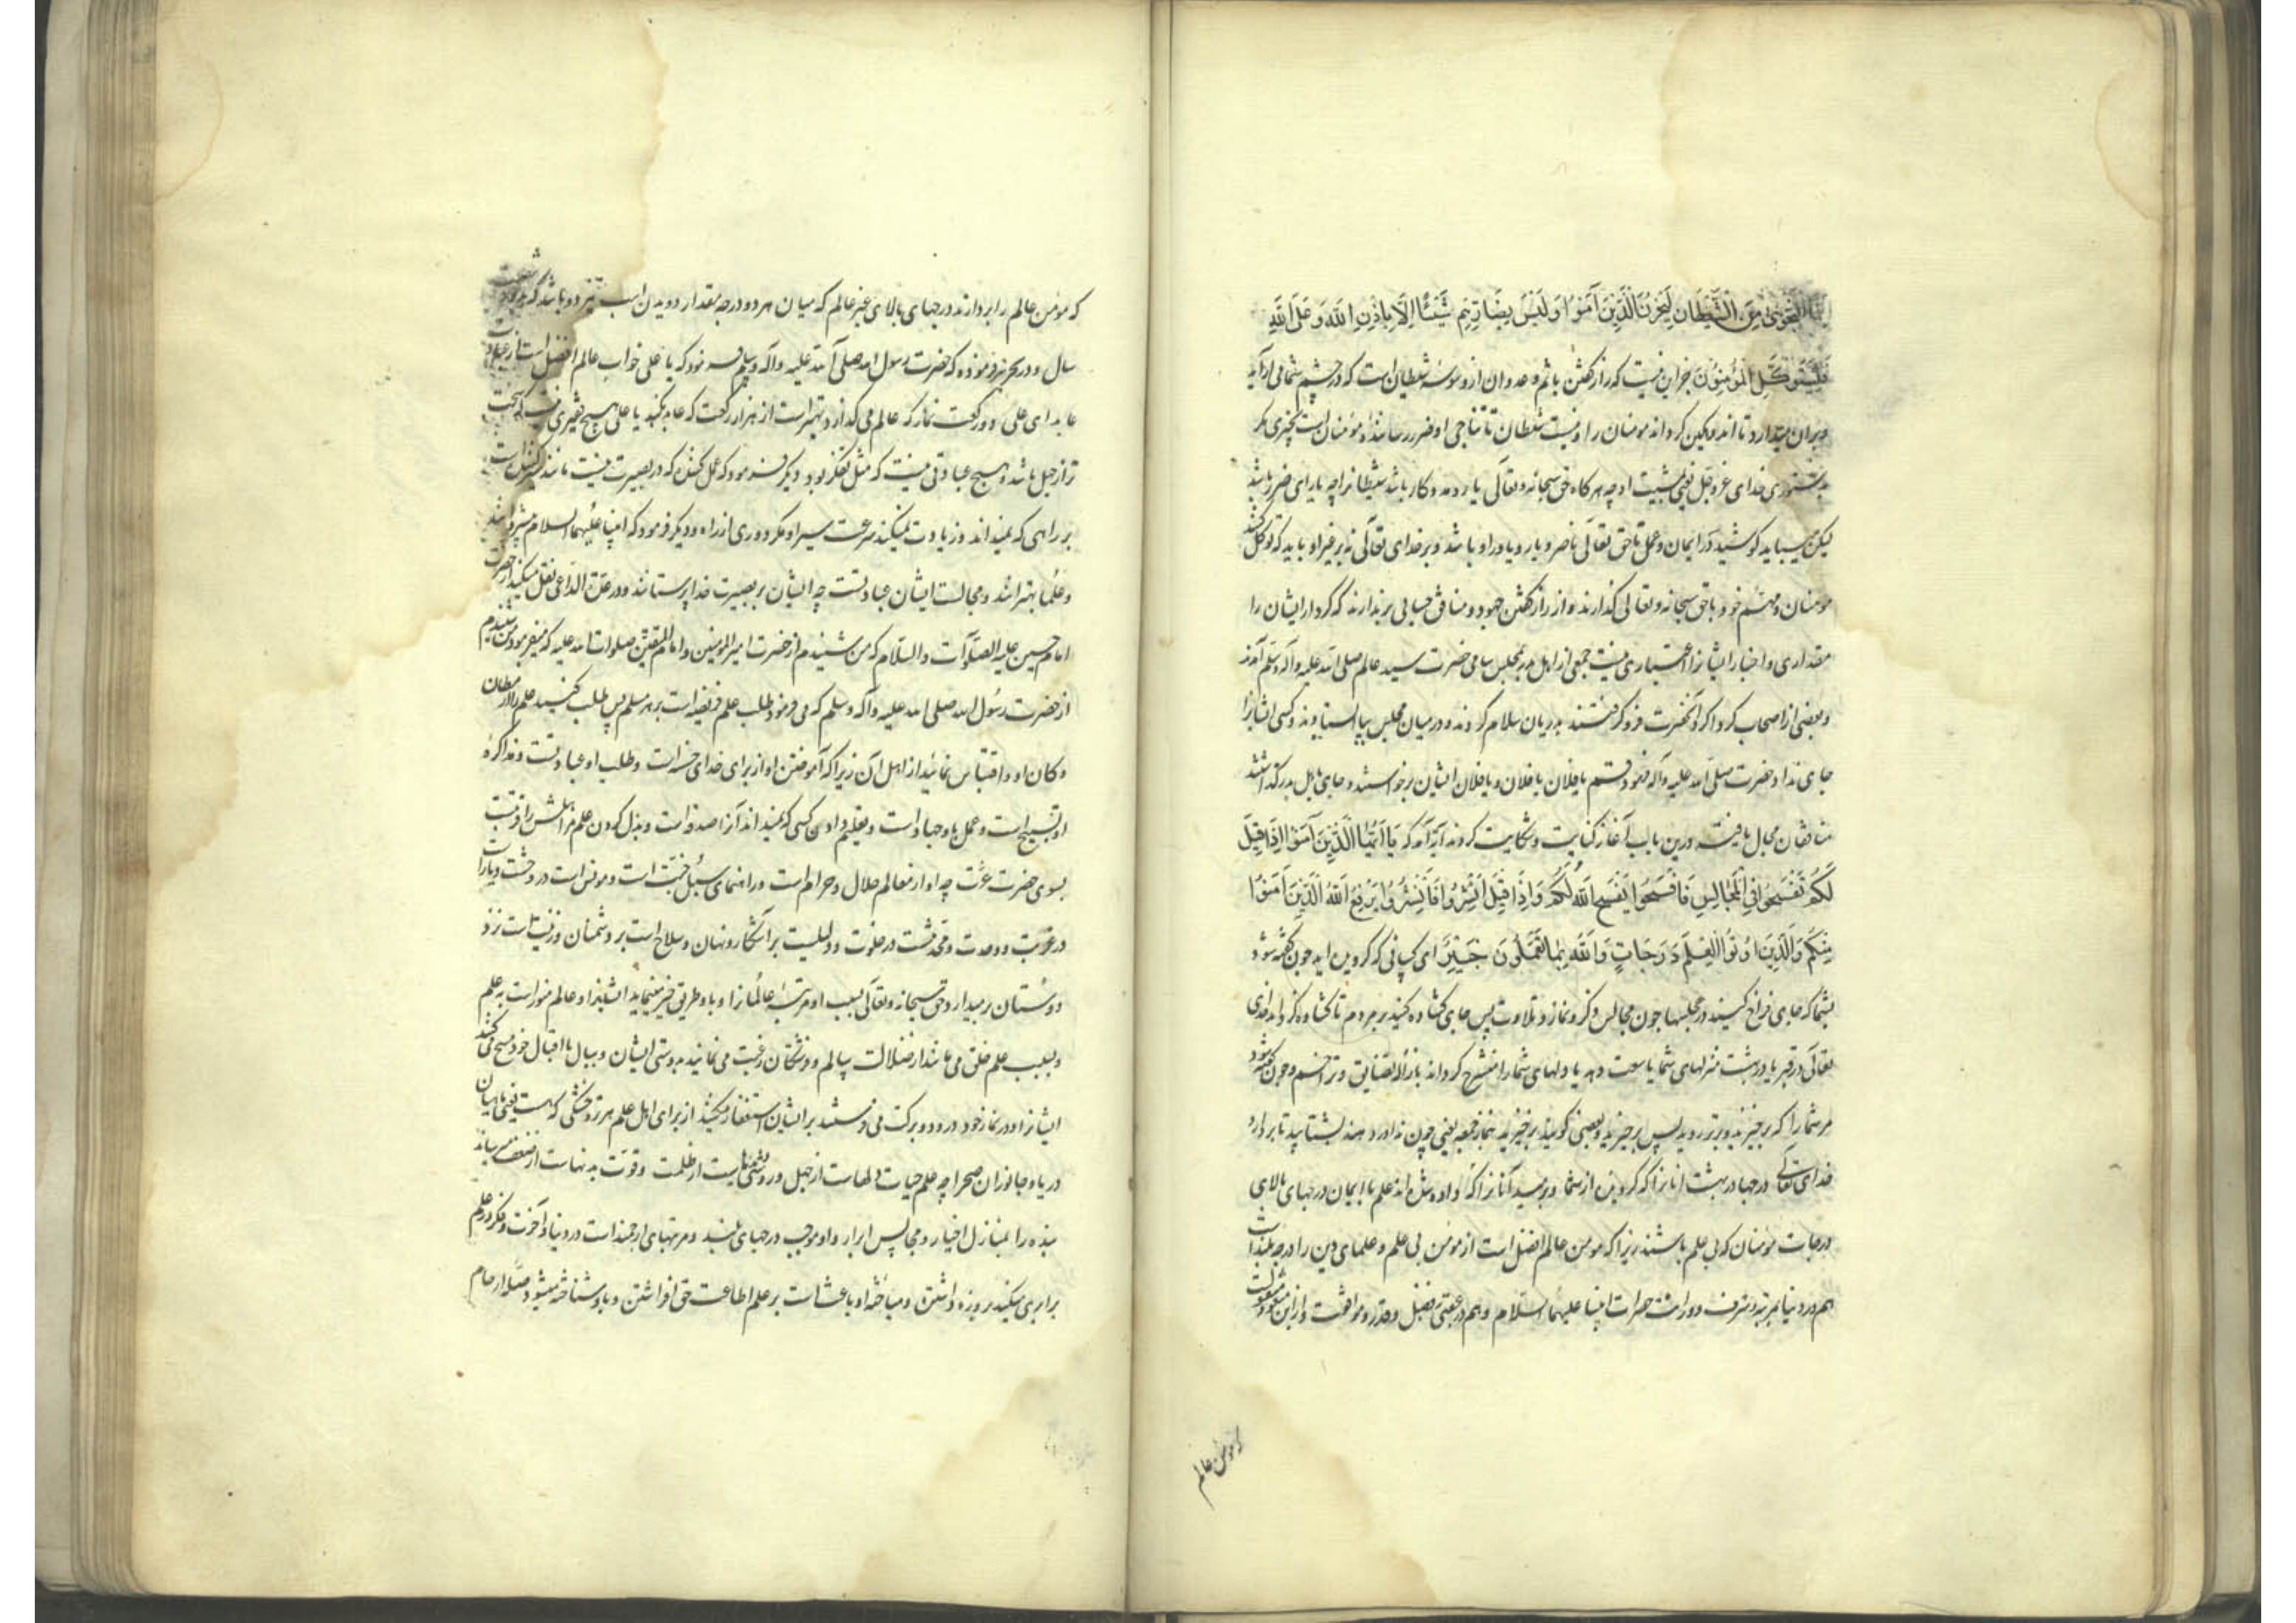 إِنَّمَا النَّجْوَىٰ مِنَ الشَّيْطَانِ لِيَحْزُنَ الَّذِينَ آمَنُوا وَلَيْسَ بِضَارِّهِمْ شَيْئًا إِلَّا بِإِذْنِ اللَّهِ وَعَلَى اللَّهِ
فَلْيَتَوَكَّلِ الْمُؤْمِنُونَ جز این نیست که راز کفتن باثم وعدوان از وسوسهٔ شیطان است که در چشم شما می آراید
وبران میدارد تا اندوهکین کرداند مومنان را ونیست شیطان یا تناجی او ضرر رسانندهٔ مؤمنان است بچیزی مکر
بدستوری خدای عزوجل یعنی بمشیت او چه هرکاه حق سبحانه وتعالی یار ومددکار باشد شیطانرا چه یارای ضرر باشد
لیکن میباید کوشید در ایمان وعمل تا حق تعالی ناصر ویار ویاور او باشد وبر خدای تعالی نه بر غیر او باید که توکل کنند
مومنان ومهم خود باحق سبحانه وتعالی کذارند واز راز کفتن جهود ومنافق حسابی برندارند که کردار ایشان را
مقداری واخبار ایشانرا اعتباری نیست جمعی از اهل بدر بمجلس سامی حضرت سید عالم صلی الله علیه واله وسلم آمدند
وبعضی از اصحاب کرداکرد آنحضرت فرو کرفتند بدریان سلام کردند ودر میان مجلس بپا ایستادند وکسی ایشانرا
جای نداد حضرت صلی الله علیه وآله فرمود قم یا فلان یا فلان ویا فلان ایشان برخواستند وجای باهل بدر کذاشتند
منافقان مجال یافته درین باب آغاز کنایت وشکایت کردند آیه آمد که يَا أَيُّهَا الَّذِينَ آمَنُوا إِذَا قِيلَ
لَكُمْ تَفَسَّحُوا فِي الْمَجَالِسِ فَافْسَحُوا يَفْسَحِ اللَّهُ لَكُمْ وَإِذَا قِيلَ انْشُزُوا فَانْشُزُوا يَرْفَعِ اللَّهُ الَّذِينَ آمَنُوا
مِنْكُمْ وَالَّذِينَ أُوتُوا الْعِلْمَ دَرَجَاتٍ وَاللَّهُ بِمَا تَعْمَلُونَ خَبِيرٌ ای کسانی که کرویده اید چون کفته شود
بشما که جای فراخ کنید در مجلسها چون مجالس ذکر ونماز وتلاوت پس جای کشاده کنید بر مردم تا کشاده کرداند خدای
تعالی در قبر یا در بهشت منزلهای شما یا سعت دهد یا دلهای شما را منشرح کرداند بازاله تضایق وتزاحم وچون کفته شود
مر شما را که برخیزید وبرتر روید پس برخیزید وبعضی کویند برخیزید بنماز جمعه یعنی چون ندا در دهند بشتابید تا بردارد
خدای تعالی درجها در بهشت انانرا که کرویدن از شما وبرمید آنانرا که داده شده اند علم با ایمان درجهای بالای
درجات مؤمنان که بی علم باشند زیرا که مومن عالم افضل است از مؤمن بی علم وعلمای دین را درجه بلند است
هم در دنیا بمرتبه وشرف ووراثت حضرات انبیا علیهم السلام وهم در عقبی بفضل وقدر ومرافقت
که مومن عالم
که مؤمن عالم را بردارند درجهای بالای غیر عالم که میان هر دو درجه بمقدار دویدن اسب تیز دو باشد که بدود شصت
سال ودر فرموده که حضرت رسول الله صلی الله علیه وآله وسلم فرمود که یا علی خواب عالم افضل است از عبادت
عابد ای علی دو رکعت نماز که عالم می کذارد بهتر است از هزار رکعت که عابد بکند یا علی هیچ فقیری نیست که سخت
تر از جهل باشد وهیچ عبادتی نیست که مثل تفکر بود ودیکر فرمود که عمل کننده که در بصیرت نیست مانند سیر کننده است
بر راهی که نمیداند وزیادت نمیکند سرعت سیر او مکر دوری از راه ودیکر فرمود که انبیا علیهم السلام
وعلما بهترانند ومجالست ایشان عبادتست چه ایشان بر بصیرت خدا پرستانند ودر عدة الداعی نقل میکند از حضرت
امام حسین علیه الصلوات والسلام که من شنیدم از حضرت امیر المومنین وامام المتقین صلوات الله علیه که میفرمود من شنیدم
از حضرت رسول الله صلی الله علیه وآله وسلم که می فرمود طلب علم فریضه است بر هر مسلم پس طلب کنید علم را از مظان
وکان او واقتباس نمائید از اهل آن زیرا که آموختن او از برای خدای حسنه است وطلب او عبادتست ومذاکره
او تسبیح است وعمل باو جهاد است وتعلیم دادن کسی که نمیداند آنرا صدقه است وبذل کردن علم مر اهلش را قربتست
بسوی حضرت عزت چه او از معالم حلال وحرام است وراهنمای سبیل جنت است ومونس است در وحشت ویار است
در غربت ووحدت ومحدثست در خلوت ودلیلیست بر آشکار ونهان وسلاح است بر دشمنان وزینت است نزد
دوستان برمیدارد حق سبحانه وتعالی بسبب او مرتبه عالمانرا وباو طریق خیر مینماید ایشانرا وعالم منور است به علم
وبسبب علم خلق می مانند از ضلالت سالم وفرشتکان رغبت می نمایند بدوستی ایشان وببال با اقبال خود مسح می کنند
ایشانرا ودر نماز خود درود وبرکت می فرستند بر ایشان استغفار میکند از برای اهل علم هر تر وخشکی که هست یعنی ماهیان
دریا وجانوران صحرا چه علم حیات دلهاست از جهل وروشنائیست از ظلمت وقوت بدنهاست از ضعف میرساند
بنده را بمنازل اخیار ومجالس ابرار واو موجب درجهای بلند ومرتبهای ارجمند است در دنیا وآخرت وفکر در علم
برابری میکند بروزه داشتن ومباحثه او باعث است بر علم اطاعت حق افراشتن وباو شناخته میشود صله ارحام